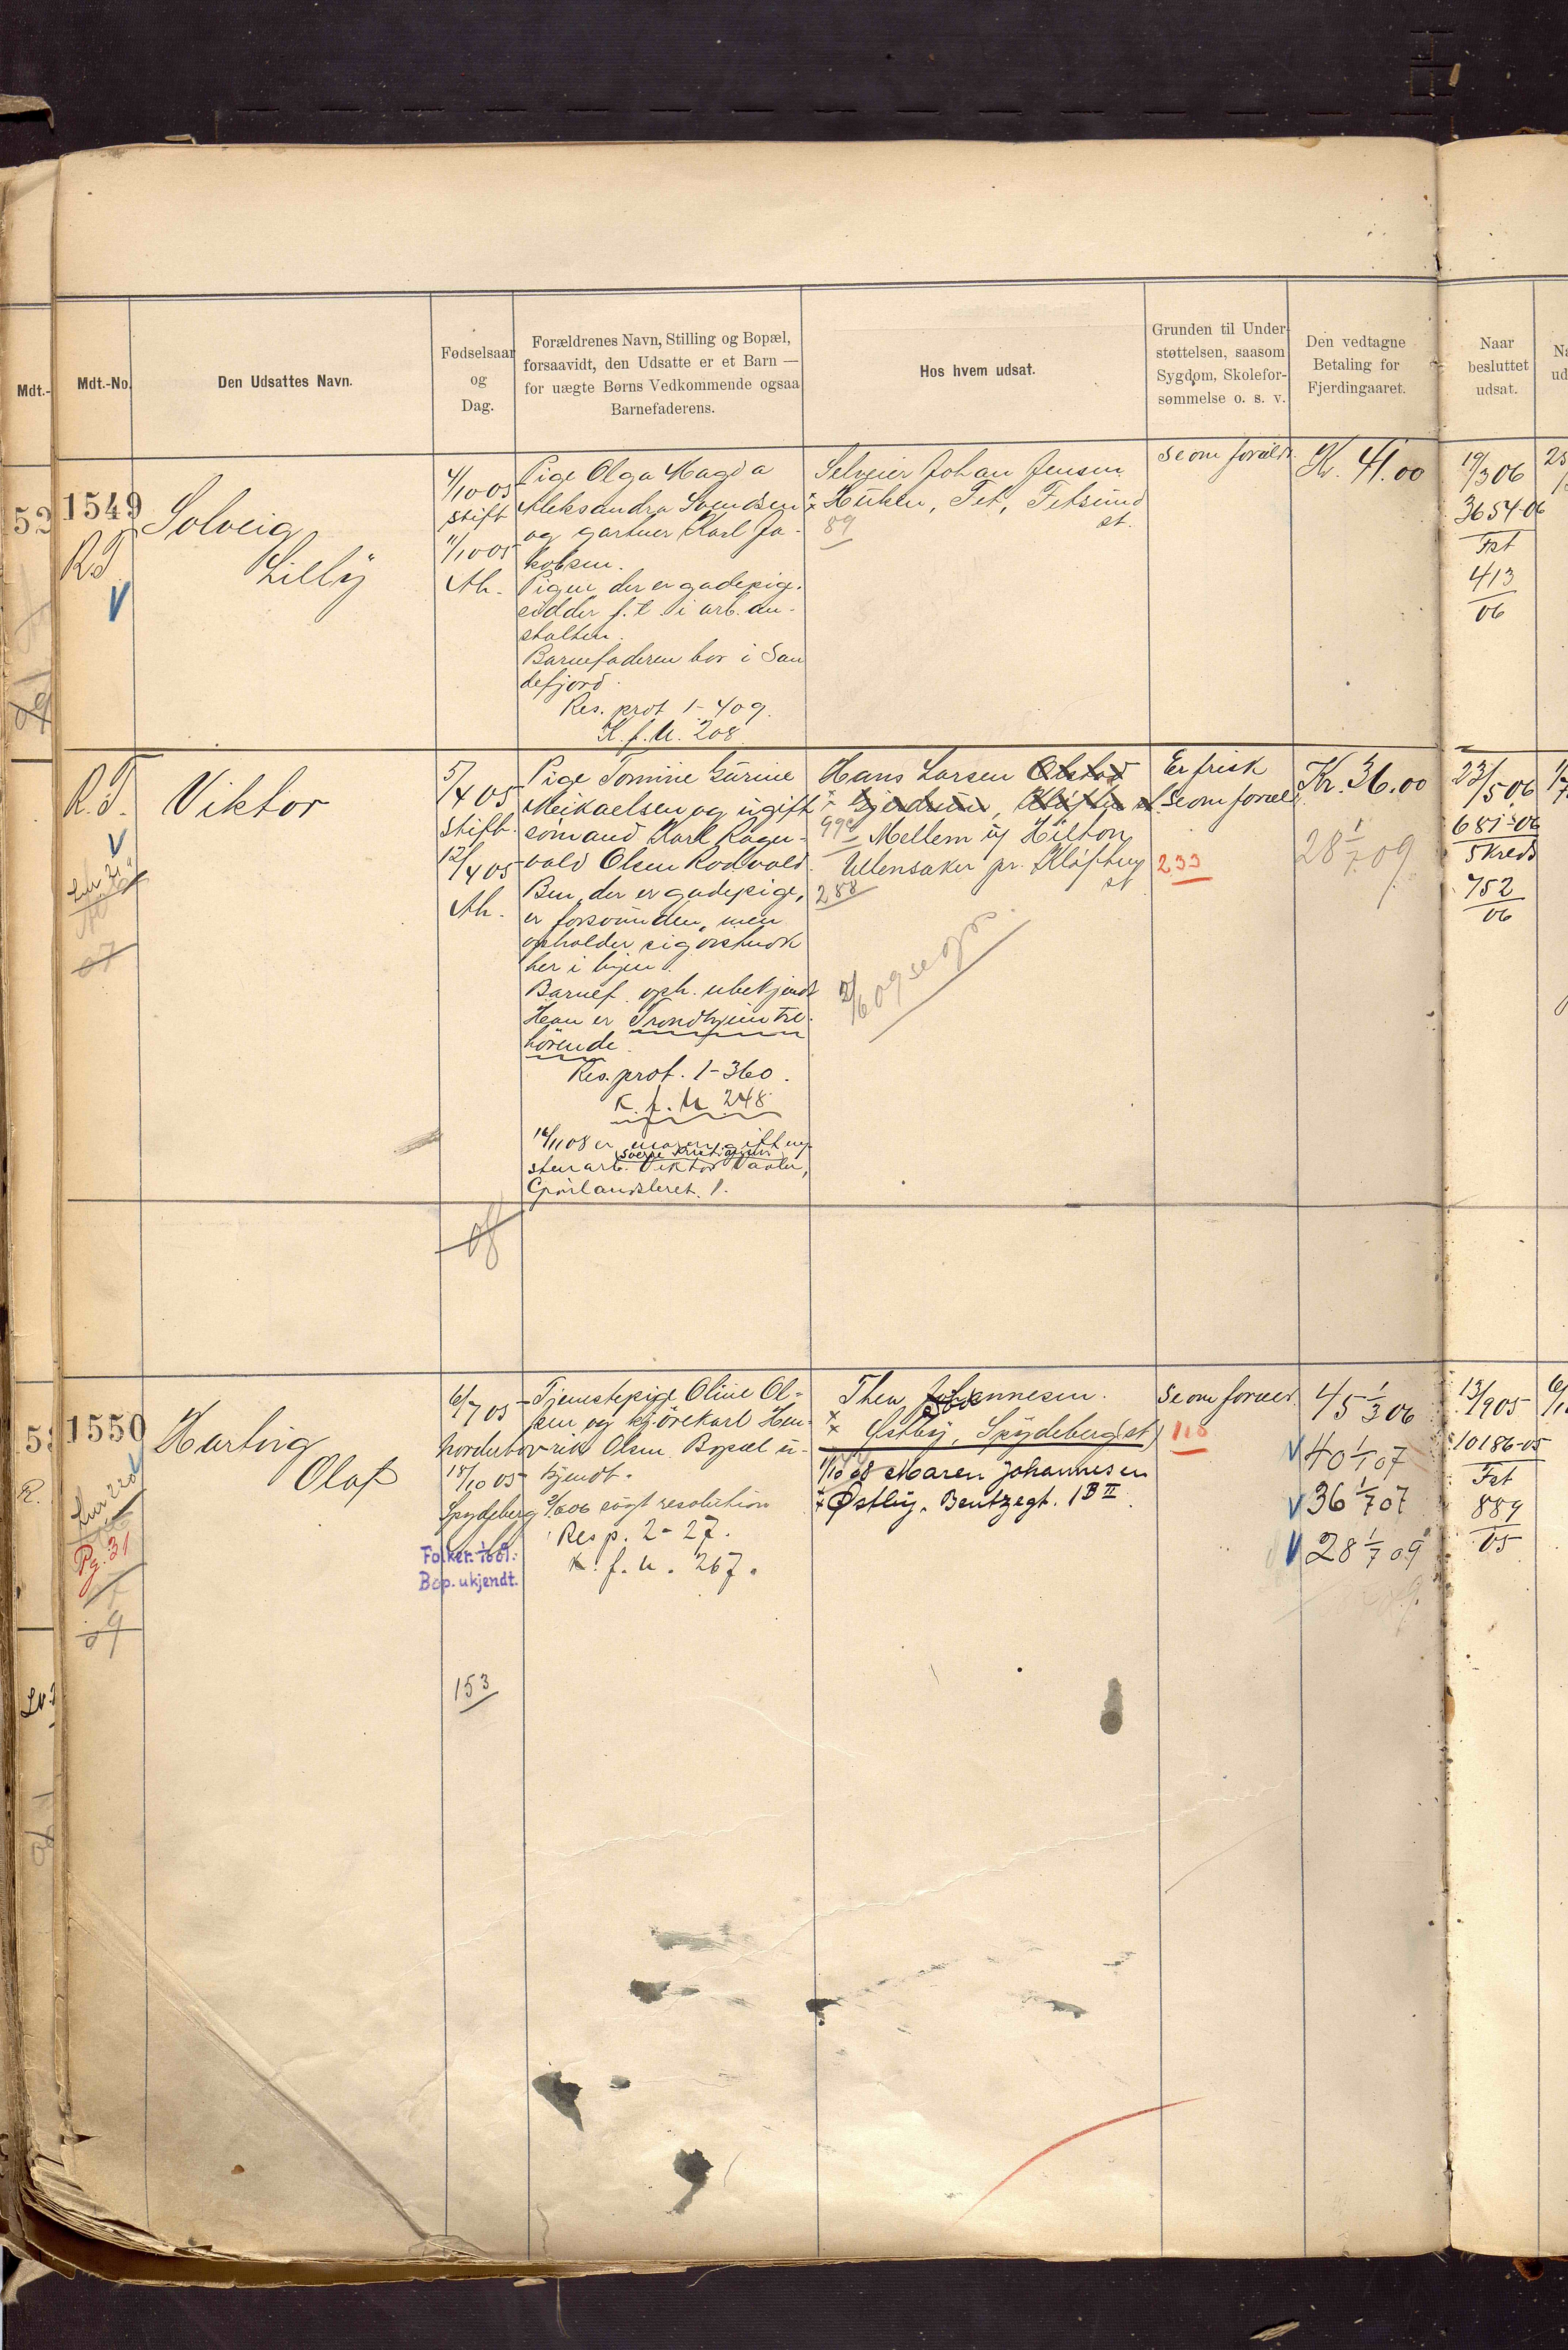 Mdt.-
Mdt.-No.
Den Udsattes Navn.
Fødselsaar
og
Dag.
Forældrenes Navn, Stilling og Bopæl,
forsaavidt, den Udsatte er et Barn —
for uægte Børns Vedkommende ogsaa
Barnefaderens.
Hos hvem udsat.
Grunden til Under-
støttelsen, saasom
Sygdom, Skolefor-
sømmelse o. s. v.
Den vedtagne
Betaling for
Fjerdingaaret.
Naar
besluttet
udsat.
1549
R.T.
V
Solveig
Lilly
4/10 05
Stift
11/10 05
Ah.
Pige Olga Magda
Aleksandra Svendsen
og gartner Karl Ja-
kobsen.
Pigen der er gadepige.
sidder f.t. i arb.an-
stalten.
Barnefaderen bor i San
defjord.
Res. prot 1-409.
K.f.U. 208
Selveier Johan Jensen
Fet, Fetsund
st.
89
se om foræld.
Kr. 41.00
19/3 06
3654-06
Fst
413
06
R.T.
V
07
Viktor
5/4 05
Stift.
12/4 05
Ah.
Pige Tomine Gurine
Meikaelsen og ugift
sømand Karl Ragn-
vald Olsen Rodvold.
Ben der er gadepige,
er forsvunden, men
opholder sig
her i byen.
Barnef. oph. ubekjendt
Han er Trondhjem til-
hörende.
Res. prot. 1-360.
K.f.U 248
moren gift
Viktor
Grönlandsleret 1.
Hans Larsen Olstad
Mellem uj Hilton
Ullensaker pr. Kløften
st
288
Er frisk
se om foræl.
233
Kr. 36.00
28 1/7 09
23/5 06
681-06
5 kreds
752
06
08
1550
V
Pg. 31
09
Hartvig
Olaf
6/7 05
18/10 05
Spydeberg
Folker. 1/6 09.
Bop. ukjendt.
153
Tjenestepige Oline Ol-
sen og kjörekarl Hen-
rik Olsen. Bopæl u-
kjendt.
06 sögt resolution
Resp. 2-27.
K.f.u. 267.
Thea Johannesen.
Østby, Spydeberg(st)
1/10 08 Maren Johannesen
Østby. Bentzegt. 1 B II
se om foræld.
118
45 1/3 06
V 40 1/1 07
V 36 1/7 07
V 28 1/7 09
13/9 05
10186-05
Fst
889
05